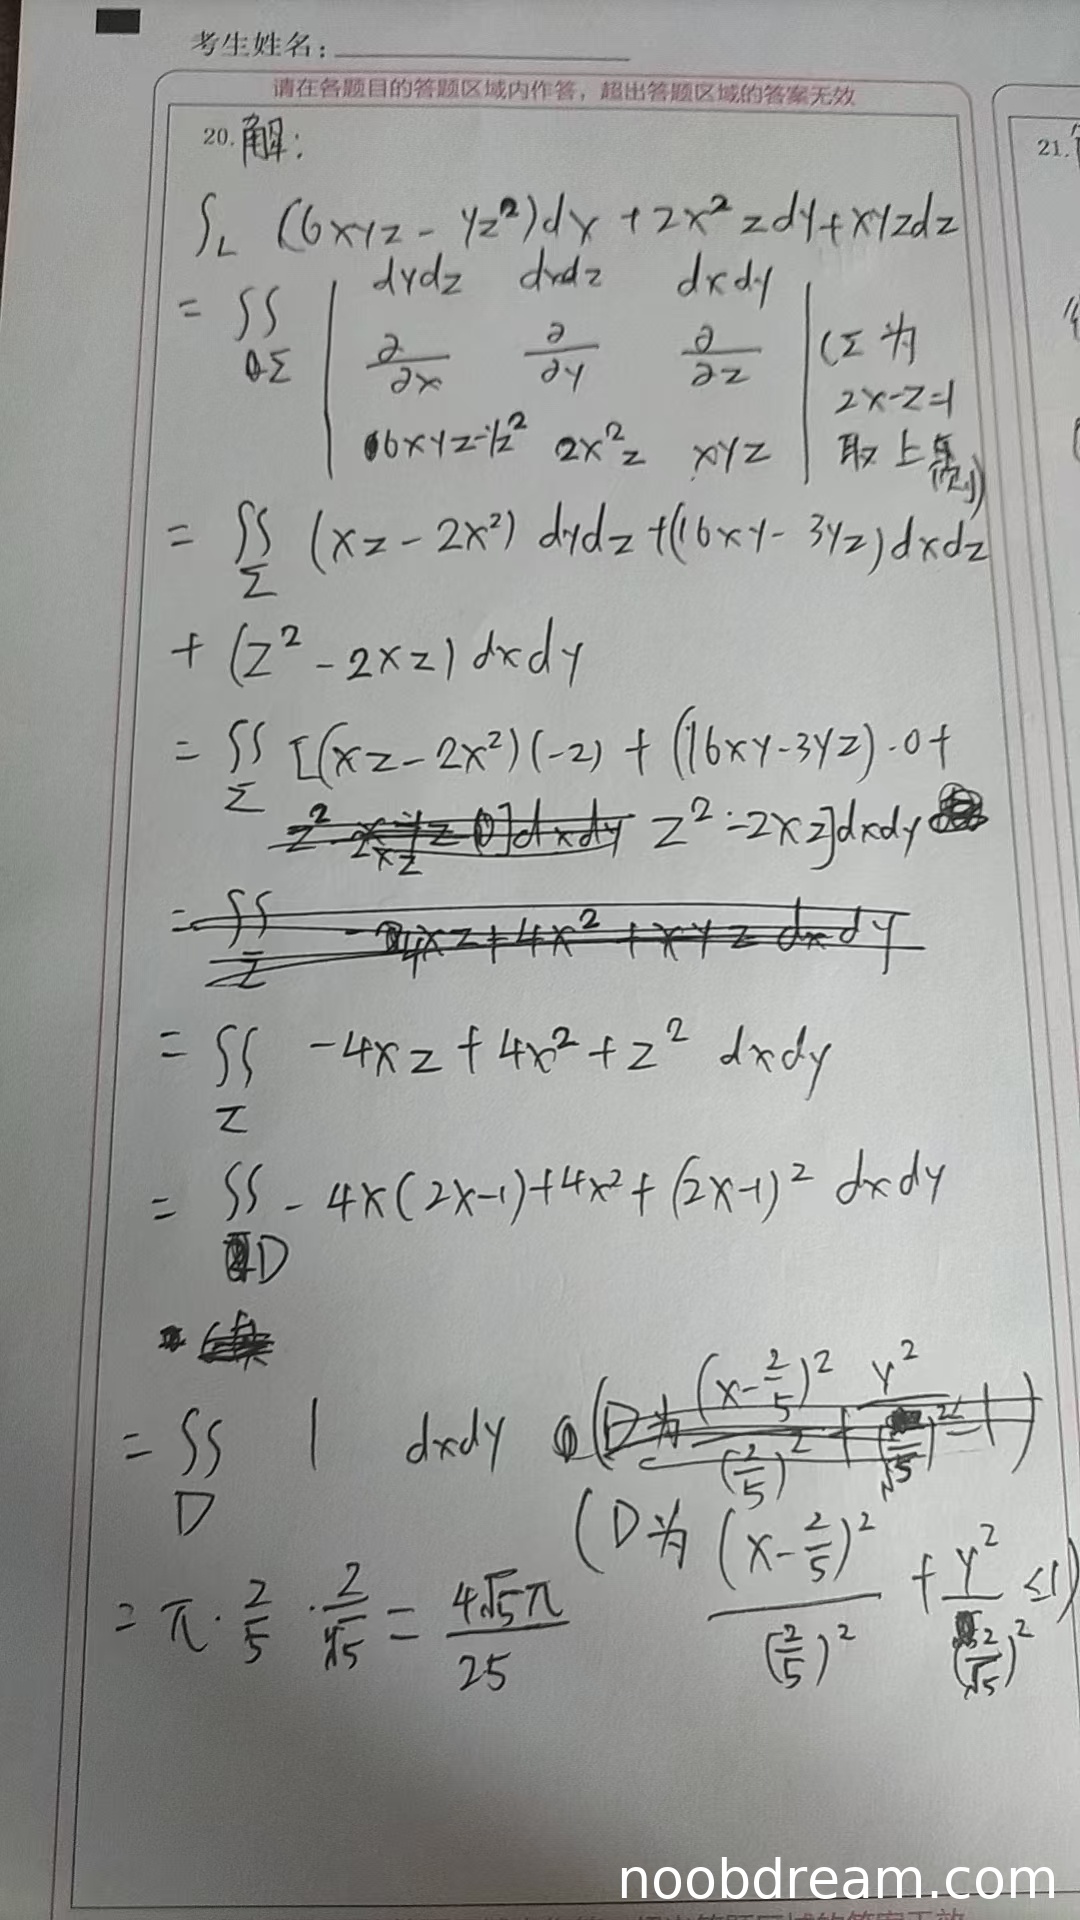 考生姓名:
请在各题目的答题区域内作答，超出答题区域的答案无效
20. 解:
21.
∫L (6xyz - yz²)dx + 2x²zdy + xyzdz
= ∬Σ | dydz dxdz dxdy
∂/∂x ∂/∂y ∂/∂z
6xyz-yz² 2x²z xyz | (Σ为 2x-z=1 取上侧)
= ∬Σ (xz - 2x²) dydz + (16xy - 3yz) dxdz
+ (z² - 2xz) dxdy
= ∬Σ [(xz - 2x²)(-2) + (16xy - 3yz)·0 +
z² - 2xz]dxdy
= ∬Σ -4xz + 4x² + z² dxdy
= ∬D -4x(2x-1) + 4x² + (2x-1)² dxdy
= ∬D 1 dxdy
(D为 (x-2/5)²/(2/5)² + y²/(2/√5)² ≤1)
= π · 2/5 · 2/√5 = 4√5π/25
noobdream.com